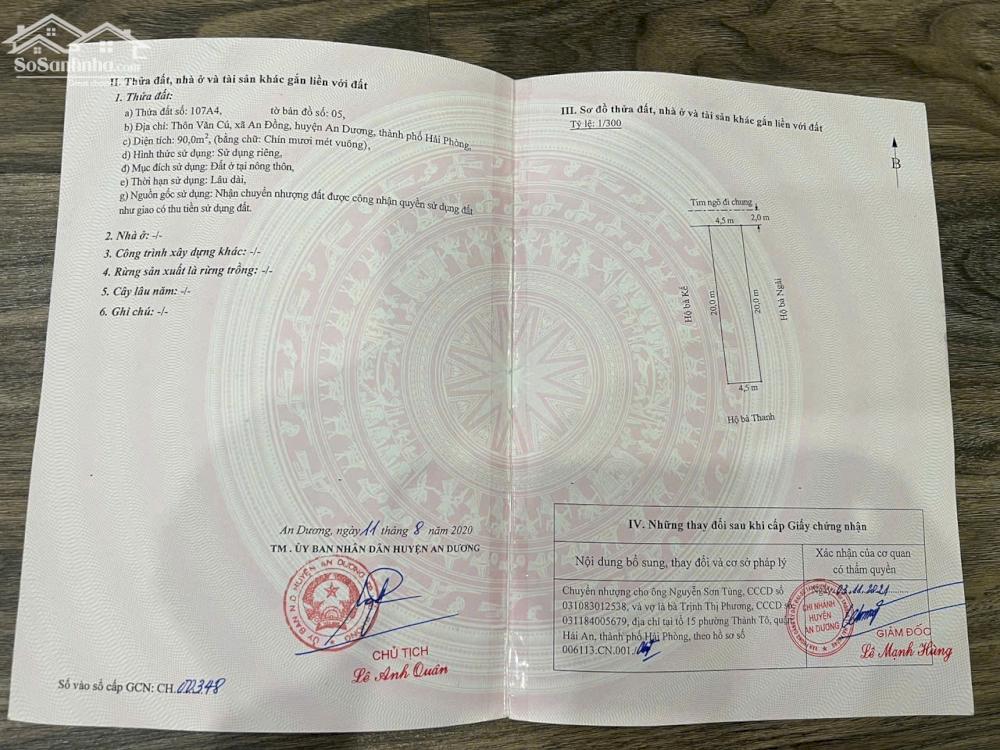 SoSanhnha.com
II. Thửa đất, nhà ở và tài sản khác gắn liền với đất
1. Thửa đất:
a) Thửa đất số: 107A4, tờ bản đồ số: 05,
b) Địa chỉ: Thôn Văn Cú, xã An Đồng, huyện An Dương, thành phố Hải Phòng,
c) Diện tích: 90,0m², (bằng chữ: Chín mươi mét vuông),
d) Hình thức sử dụng: Sử dụng riêng,
đ) Mục đích sử dụng: Đất ở tại nông thôn,
e) Thời hạn sử dụng: Lâu dài,
g) Nguồn gốc sử dụng: Nhận chuyển nhượng đất được công nhận quyền sử dụng đất
như giao có thu tiền sử dụng đất.
2. Nhà ở: -/-
3. Công trình xây dựng khác: -/-
4. Rừng sản xuất là rừng trồng: -/-
5. Cây lâu năm: -/-
6. Ghi chú: -/-
An Dương, ngày 11 tháng 8 năm 2020
TM . ỦY BAN NHÂN DÂN HUYỆN AN DƯƠNG
CHỦ TỊCH
Lê Anh Quân
Số vào sổ cấp GCN: CH.00348
III. Sơ đồ thửa đất, nhà ở và tài sản khác gắn liền với đất
Tỷ lệ: 1/300
B
Tim ngõ đi chung
4,5 m
2,0 m
Hộ bà Kế
20,0 m
20,0 m
Hộ bà Ngãi
4,5 m
Hộ bà Thanh
IV. Những thay đổi sau khi cấp Giấy chứng nhận
Nội dung bổ sung, thay đổi và cơ sở pháp lý
Xác nhận của cơ quan
có thẩm quyền
Chuyển nhượng cho ông Nguyễn Sơn Tùng, CCCD số
031083012538, và vợ là bà Trịnh Thị Phương, CCCD số
031184005679, địa chỉ tại tổ 15 phường Thành Tô, quận
Hải An, thành phố Hải Phòng, theo hồ sơ số
006113.CN.001.
Ngày 03.11.2021
CHI NHÁNH
HUYỆN
AN DƯƠNG
GIÁM ĐỐC
Lê Mạnh Hùng